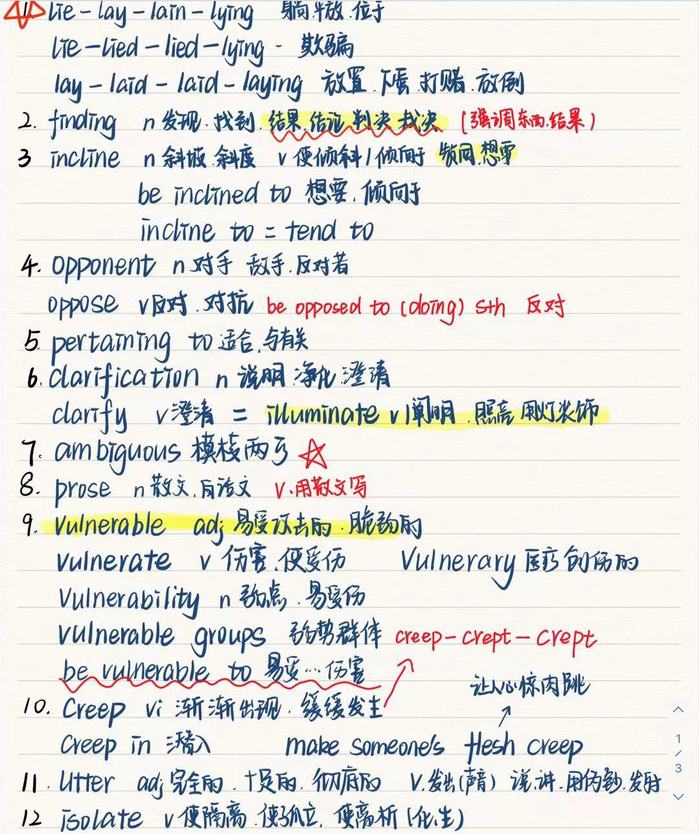 1. lie-lay-lain-lying 躺.平放.位于
lie-lied-lied-lying. 欺骗
lay-laid-laid-laying 放置.下蛋.打赌.放倒
2. finding n发现.找到.结果.结论.判决.裁决 (强调东西.结果)
3 incline n斜坡.斜度 v使倾斜/倾向于 赞同.想要
be inclined to 想要.倾向于
incline to = tend to
4. opponent n对手 敌手.反对者
oppose v反对.对抗 be opposed to (doing) sth 反对
5. pertaining to 适合.与有关
6. clarification n 说明.净化.澄清
clarify v澄清 = illuminate v阐明.照亮.用灯装饰
7. ambiguous 模棱两可
8. prose n散文. v.用散文写
9. vulnerable adj 易受攻击的.脆弱的
vulnerate v 伤害.使受伤 Vulnerary 医疗创伤的
Vulnerability n 弱点.易受伤
vulnerable groups 弱势群体 creep-crept-crept
be vulnerable to 易受…伤害
让人心惊肉跳
10. Creep vi 渐渐出现.缓缓发生
Creep in 潜入 make someone's flesh creep
1
/
3
11. Utter adj完全的.十足的.彻底的 v.发出(声音) 说.讲.用.发射
12 isolate v使隔离.使孤立.使离析(化.生)